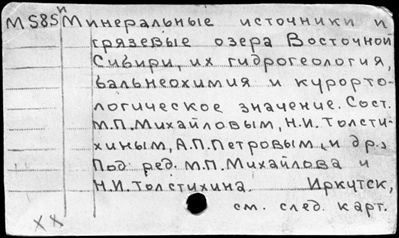 М585и Минеральные источники и
грязевые озера Восточной
Сибири, их гидрогеология,
бальнеохимия и курорто-
логическое значение. Сост.
М.П.Михайловым, Н.И.Толсти-
хиным, А.П.Петровым и др.
Под ред. М.П.Михайлова и
Н.И.Толстихина. Иркутск,
см. след. карт.
XX